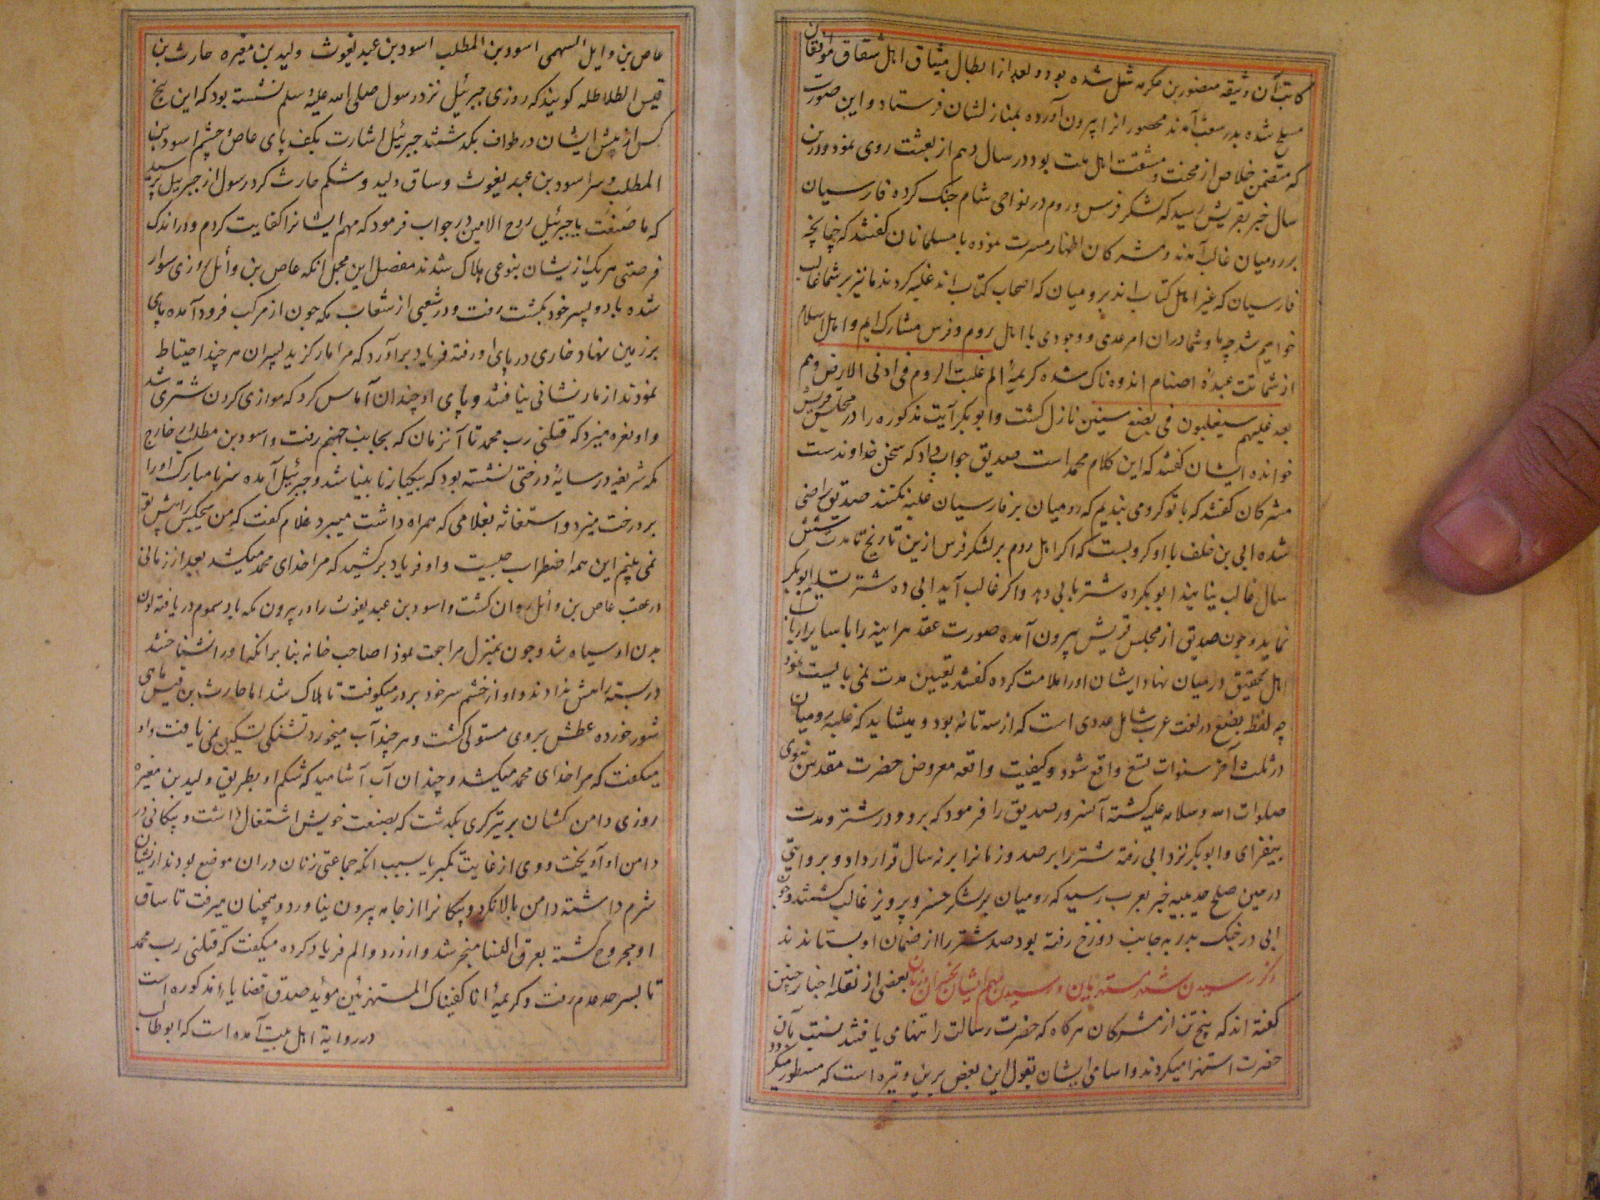 کاتب آن وثیقه منصور بن عکرمه شل شده بود و بعد از ابطال میثاق اهل شقاق موافقان
مسلح شده بدر شعب آمدند محصورانرا بیرون آورده بمنازلشان فرستاد و این صورت
که متضمن خلاص از محنت و مشقت اهل ملت بود در سال دهم از بعثت روی نمود و درین
سال خبر بقریش رسید که لشکر فرس و روم در نواحی شام جنک کرده فارسیان
بر رومیان غالب آمدند و مشرکان اظهار مسرت نموده با مسلمانان کفتند که چنانچه
فارسیان که غیر اهل کتاب اند بر رومیان که اصحاب کتاب اند غلبه کردند ما نیز بر شما غالب
خواهیم شد چه ما و شما دران امر عدمی و وجودی با اهل روم و فرس مشارک ایم و اهل اسلام
از شماتت عبدهٔ اصنام اندوه ناک شده کریمهٔ الم غلبت الروم فی ادنی الارض و هم
بعد غلبهم سیغلبون فی بضع سنین نازل کشت و ابوبکر آیت مذکوره را در مجلس قریش
خوانده ایشان کفتند که این کلام محمد است صدیق جواب داد که سخن خداوندست
مشرکان کفتند که با تو کرو می بندیم که رومیان بر فارسیان غلبه نکنند صدیق راضی
شده ابی بن خلف با او کرو بست که اکر اهل روم بر لشکر فرس ازین تاریخ تا مدت شش
سال غالب نیایند ابوبکر ده شتر بابی دهد و اکر غالب آید ابی ده شتر تسلیم ابوبکر
نماید و چون صدیق از مجلس قریش بیرون آمده صورت عقد مراهنه را با سایر ارباب
اهل تحقیق در میان نهاد ایشان او را ملامت کرده کفتند تعیین مدت نمی بایست نمود
چه لفظ بضع در لغت عرب شامل عددی است که از سه تا نه بود و میشاید که غلبه رومیان
در ثلث آخر سنوات تسع واقع شود و کیفیت واقعه معروض حضرت مقدس نبوی
صلوات الله و سلامه علیه کشته آنسرور صدیق را فرمود که برو و در شتر و مدت
بیفزای و ابوبکر نزد ابی رفته شتر را بر صد و زمانرا بر نه سال قرار داد و بروایتی
در حین صلح حدیبیه خبر بعرب رسید که رومیان بر لشکر خسرو پرویز غالب کشتند و چون
ابی در جنک بدر به جانب دوزخ رفته بود صد شتر را از ضمان او بستاندند
ذکر رسیدن شدت مستهزیان و رسیدن مهم ایشان بخسران و زیان بعضی از نقله اخبار چنین
کفته اند که پنج تن از مشرکان هرکاه که حضرت رسالت را تنها می یافتند نسبت بآن
حضرت استهزا میکردند و اسامی ایشان بقول این بعض برین وتیره است که مسطور میکردد
عاص بن وایل السهمی اسود بن المطلب اسود بن عبد یغوث ولید بن مغیره حارث بن
قیس الطلاطله کویند که روزی جبرئیل نزد رسول صلی الله علیه سلم نشسته بود که این پنج
کس از پیش ایشان در طواف بکذشتند جبرئیل اشارت بکف پای عاص و چشم اسود بن
المطلب و سر اسود بن عبد یغوث و ساق ولید و شکم حارث کرد رسول از جبرئیل پرسید
که ما صنعت یا جبرئیل روح الامین در جواب فرمود که مهم ایشانرا کفایت کردم و در اندک
فرصتی هر یک ازیشان بنوعی هلاک شدند مفصل این مجمل آنکه عاص بن وائل روزی سوار
شده با دو پسر خود بکشت رفت و در شعبی از شعاب مکه چون از مرکب فرود آمده پای
بر زمین نهاد خاری در پای او رفته فریاد برآورد که مرا مار کزید پسران هر چند احتیاط
نمودند از مار نشانی نیافتند و پای او چندان آماس کرد که موازی کردن شتری شد
و او نعره میزد که قتلنی رب محمد تا آنزمان که بجانب جهنم رفت و اسود بن مطلب خارج
مکه شریفه در سایهٔ درختی نشسته بود که بیکبار نابینا شد و جبرئیل آمده سر نامبارک او را
بر درخت میزد و استغاثه بغلامی که همراه داشت میبرد غلام کفت که من هیچکس را پیش تو
نمی بینم این همه اضطراب چیست و او فریاد برکشید که مرا خدای محمد میکشد بعد از زمانی
در عقب عاص بن وائل روان کشت و اسود بن عبد یغوث را در بیرون مکه باد سموم دریافته لون
بدن او سیاه شد و چون بمنزل مراجعت نمود اصاحب خانه بنا بر آنکه او را نشناختند
در بسته راهش ندادند و او از خشم سر خود بر در میکوفت تا هلاک شد اما حارث بن قیس ماهی
شور خورده عطش بر وی مستولی کشت و هر چند آب میخورد تشنکی تسکین نمی یافت و او
میکفت که مرا خدای محمد میکشد و چندان آب آشامید که شکم او بطریق ولید بن مغیره
روزی دامن کشان بر تیرکری بکذشت که بصنعت خویش اشتغال داشت و پیکانی در
دامن او آویخت و وی از غایت تکبر یا سبب آنکه جماعتی زنان دران موضع بودند ازیشان
شرم داشته دامن بالا نکرد و پیکانرا از جامه بیرون نیاورد و همچنان میرفت تا ساق
او مجروح کشته بعرق النسا منجر شد و از درد و الم فریاد کرده میکفت که قتلنی رب محمد
تا بسرحد عدم رفت و کریمهٔ انا کفیناک المستهزئین مؤید صدق قضایا مذکوره است
در روایة اهل بیت آمده است که ابو طالب